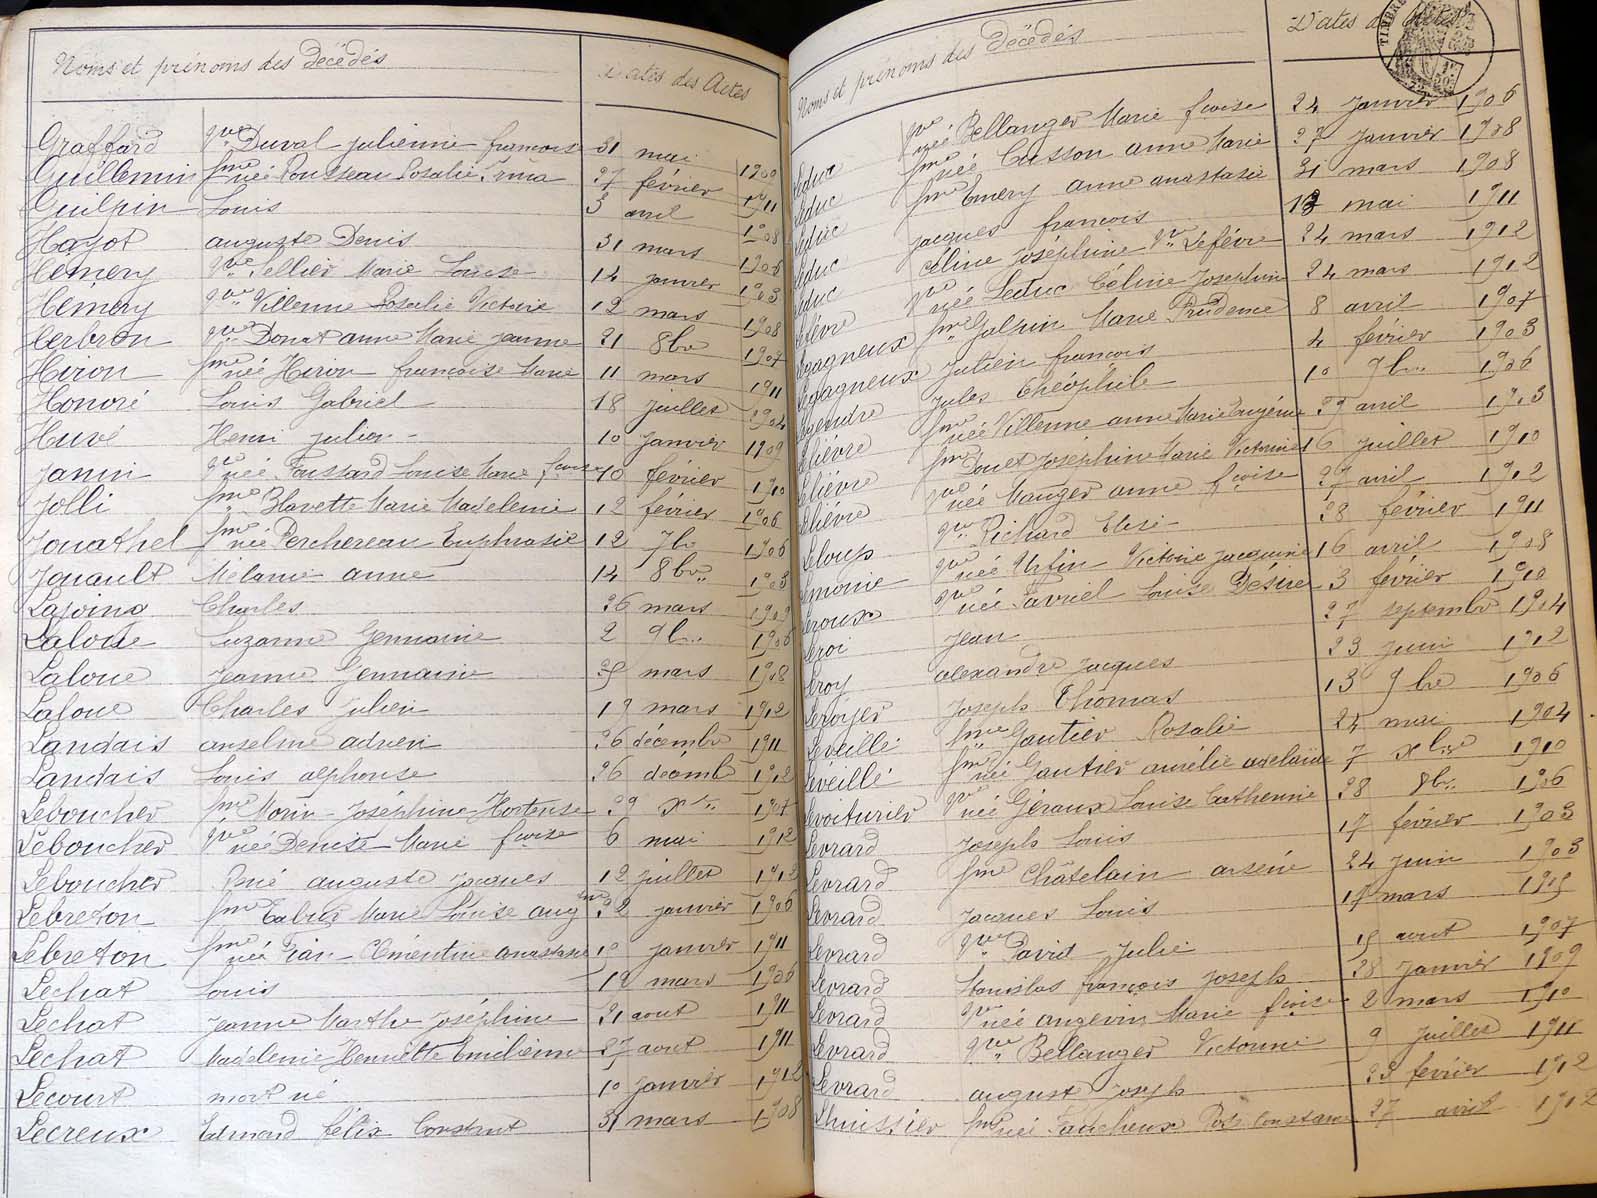 Noms et prénoms des Décédés Dates des Actes
Graffard Vve Duval Julienne françois 31 mai 1900
Guillemin fme née Rousseau Rosalie 27 février 1911
Guilpin Louis 3 avril 1908
Hayot auguste Denis 31 mars 1906
Hemery Vve Pellier Marie Louise 14 janvier 1903
Hémery Vve Villenne Rosalie Victoire 12 mars 1908
Herbron Vve Donat anne Marie jeanne 21 8bre 1907
Hiron fme née Hiron françoise Marie 11 mars 1911
Honoré Louis Gabriel 18 juillet 1904
Huvé Henri julien 10 janvier 1909
Janin Vve née Foussard Louise Marie fçoise 10 février 1910
Jolli fme Blavette Marie Madeleine 12 février 1906
Jouathel fme née Perchereau Euphrasie 12 7bre 1906
Jouault Mélanie anne 14 8bre 1903
Lajoing Charles 26 mars 1909
Laloue Suzanne Germaine 2 9bre 1906
Laloue Jeanne Germaine 25 mars 1908
Laloue Charles Julien 19 mars 1912
Landais anselme adrien 26 décembre 1911
Landais Louis alphonse 26 décemb 1912
Leboucher fme Morin Joséphine Hortense 29 xbre 1907
Leboucher Vve née Denise Marie fçoise 6 mai 1912
Leboucher René auguste Jacques 12 juillet 1912
Lebreton fme Marie Louise aug 22 janvier 1906
Lebreton fme née Clémentine anastasie 19 janvier 1911
Lechat Louis 12 mars 1906
Lechat Jeanne Marthe Joséphine 21 aout 1911
Lechat Madeleine Henriette Emilienne 27 aout 1911
Lecourt mort né 10 janvier 1912
Lecreux Edmond félix Constant 31 mars 1908
Noms et prénoms des Décédés Dates des Actes
TIMBRE
Leduc Vve née Bellanger Marie fçoise 24 janvier 1906
Leduc fme née Cusson anne Marie 27 janvier 1908
Leduc fme Emery anne anastasie 31 mars 1908
Leduc jacques françois 12 mai 1911
Leduc céline Joséphine Vve Lefévre 24 mars 1912
Lefévre Vve née Leduc Céline Josephine 24 mars 1912
Legagneux fme Galpin Marie Prudence 8 avril 1907
Legagneux Julien françois 4 février 1903
Legendre Jules Théophile 10 9bre 1906
Lelièvre fme née Villenne anne Marie Eugénie 29 avril 1903
Lelièvre fme Joséphine Marie Victorine 16 juillet 1910
Lelièvre Vve née Mauger anne fçoise 27 avril 1912
Leloup Vve Richard Elise 28 février 1911
Lemoine Vve née Urfin Victoire jacquine 16 avril 1908
Leroux Vve née Favriel Louise Désirée 3 février 1910
Leroi Jean 27 septembre 1904
Leroy alexandre jacques 23 juin 1912
Leroyer Joseph Thomas 13 9bre 1906
Leveillé fme Gautier Rosalie 24 mai 1904
Leveillé fme née Gautier aurélie adelaïde 7 xbre 1910
Levoiturier Vve née Géraux Louise Catherine 28 8bre 1906
Levrard Joseph Louis 17 février 1903
Levrard fme Châtelain arsène 24 juin 1903
Levrard Jacques Louis 17 mars 1905
Levrard Vve David Julie 19 aout 1907
Levrard Stanislas françois Joseph 28 janvier 1909
Levrard Vve née angevin Marie fçoise 2 mars 1910
Levrard Vve Bellanger Victorine 9 juillet 1911
Levrard auguste Joseph 23 février 1912
Lhuissier fme née Faucheux Rose Constance 27 avril 1912